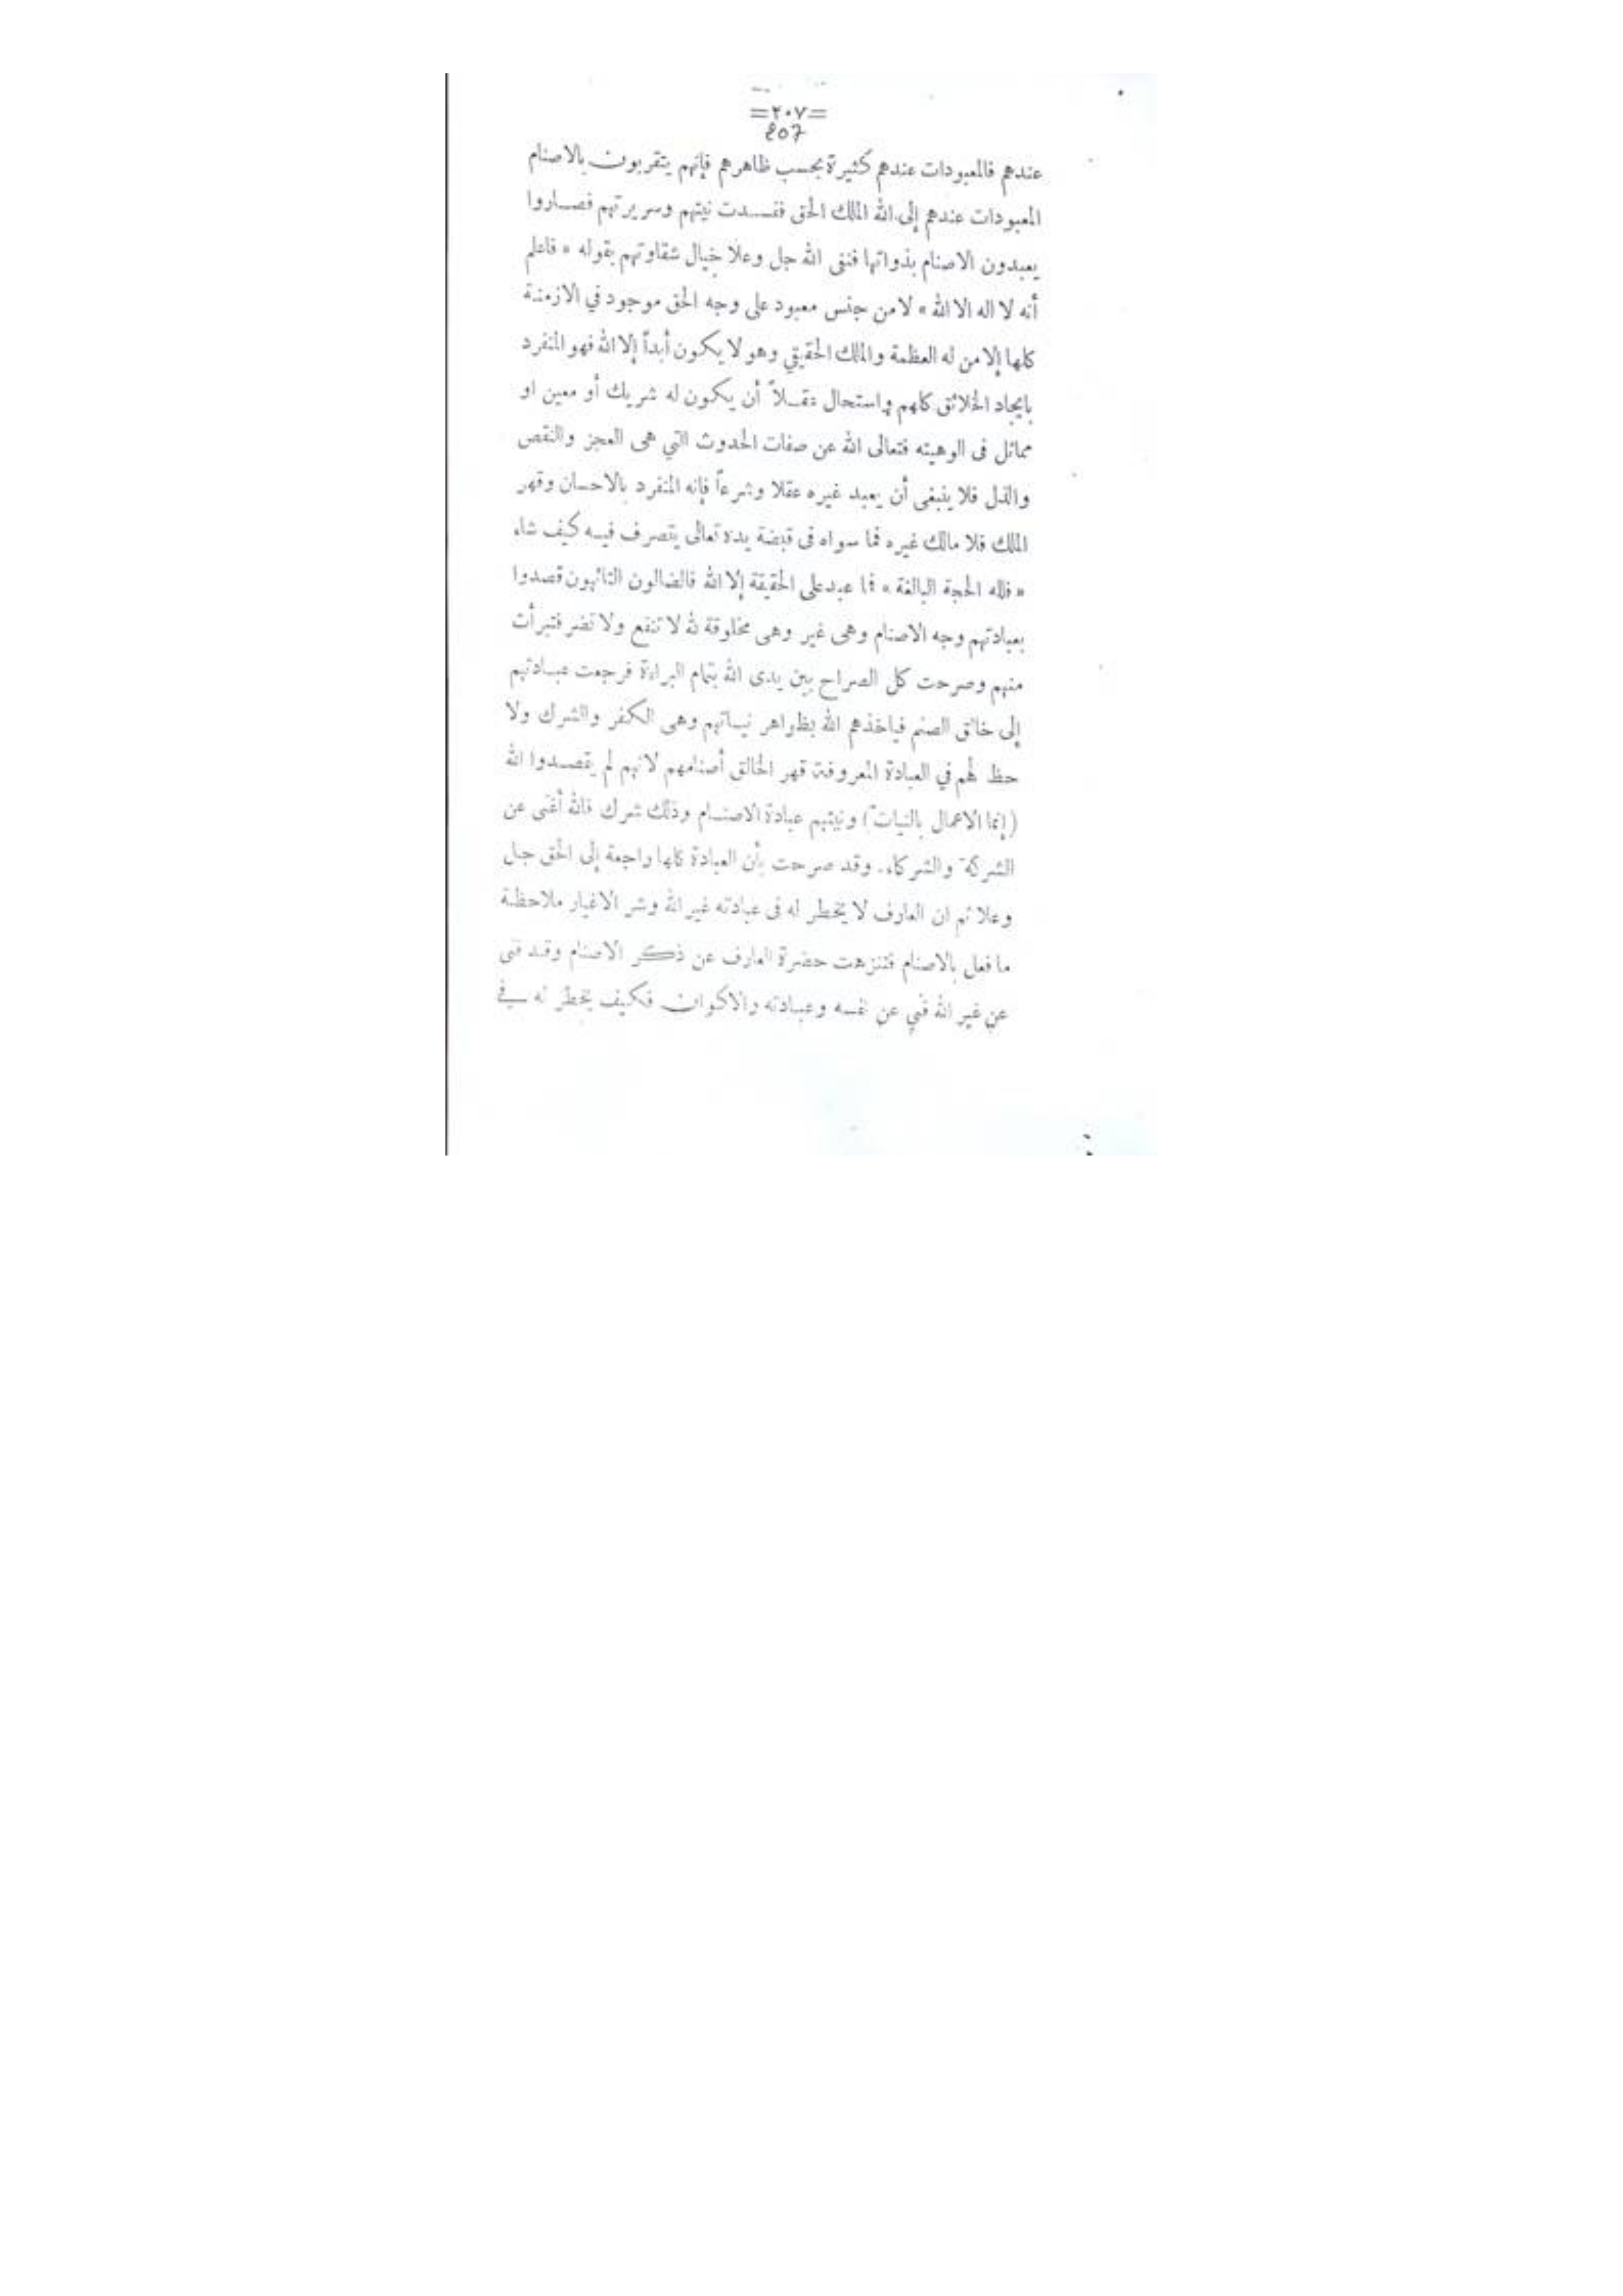 =٢٠٧=
207
عندهم فالمعبودات عندهم كثيرة بحسب ظاهرهم فإنهم يتقربون بالاصنام
المعبودات عندهم إلى الله الملك الحق ففسدت نيتهم وسريرتهم فصاروا
يعبدون الاصنام بذواتها فنفى الله جل وعلا خيال شقاوتهم بقوله « فاعلم
أنه لا اله الا الله » لا من جنس معبود على وجه الحق موجود في الازمنة
كلها إلا من له العظمة والملك الحقيقي وهو لا يكون أبداً إلا الله فهو المنفرد
بايجاد الخلائق كلهم واستحال عقلاً أن يكون له شريك أو معين او
مماثل فى الوهيته فتعالى الله عن صفات الحدوث التي هى العجز والنقص
والذل فلا ينبغى أن يعبد غيره عقلا وشرعاً فإنه المنفرد بالاحسان وقهر
الملك فلا مالك غيره فما سواه فى قبضة يده تعالى يتصرف فيه كيف شاء
« فلله الحجة البالغة » فما عبد على الحقيقة إلا الله فالضالون التائهون قصدوا
بعبادتهم وجه الاصنام وهى غير وهى مخلوقة لله لا تنفع ولا تضر فتبرأت
منهم وصرحت كل الصراح بين يدى الله بتمام البراءة فرجعت عبادتهم
إلى خالق الصنم فياخذهم الله بظواهر نيساتهم وهى الكفر والشرك ولا
حظ لهم في العبادة المعروفة قهر الخالق أصنامهم لانهم لم يقصدوا الله
(إنما الاعمال بالنيات) ونيتهم عبادة الاصنام وذلك شرك فالله أغنى عن
الشركة والشركاء. وقد صرحت بأن العبادة كلها راجعة إلى الحق جل
وعلا ثم ان العارف لا يخطر له فى عبادته غير الله وشر الاغيار ملاحظة
ما فعل بالاصنام فتنزهت حضرة العارف عن ذكر الاصنام وقد فنى
عن غير الله فني عن نفسه وعبادته والاكوان فكيف يخطر له في